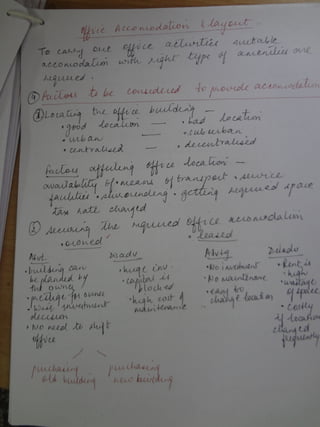 Office Accomodation & layout.
To carry out office activities suitable
accomodation with right type of amenities are
required.
Factors to be considered to provide accomodation
① Locating the office building —
• good location — • bad location
• urban — • suburban
• centralised — • decentralised
Factors affecting office location —
availability of • means of transport • service
facilities • surrounding • getting required space
tax rate charged
② Securing the required office accomodation
• owned • leased
Advt. Disadv Advtg Disadv
• building can
be planned by
the owner
• prestige for owner
• Wise investment
decision
• No need to shift
office
• huge inv.
• capital is
blocked
• high cost of
maintenance
• No investment
• No maintenance
• easy to
change location
• Rent is
high
• wastage
of space
• Costly
if location
changed
frequently
purchasing
old building
purchasing
new building